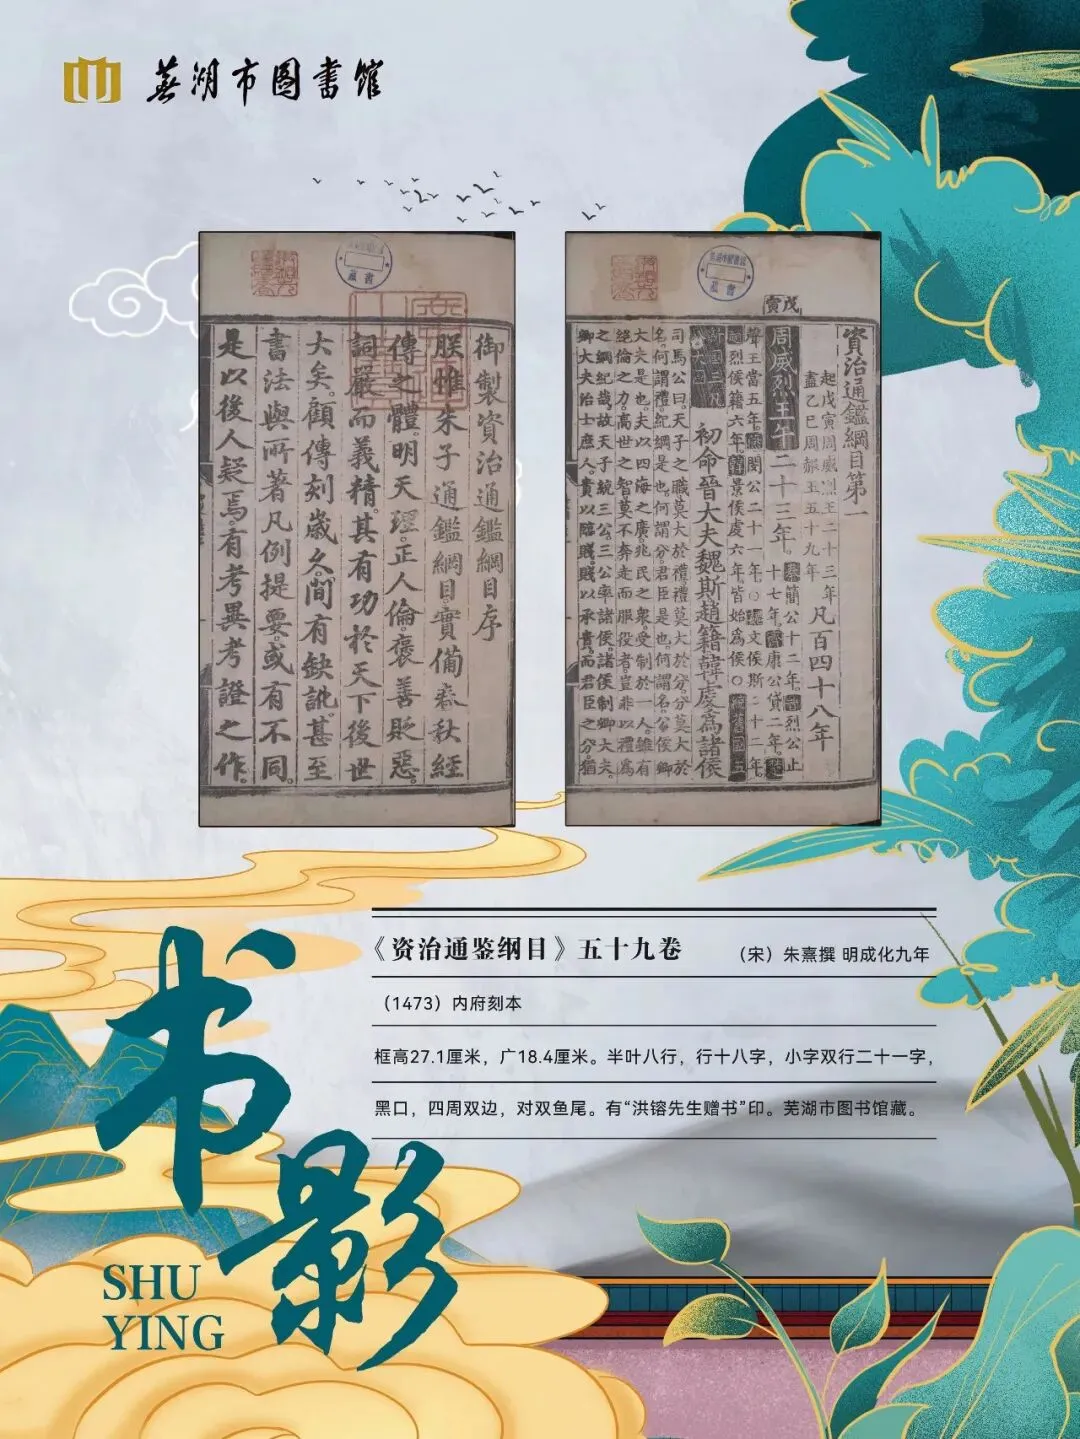 蕪湖市图书馆
御製資治通鑑綱目序
朕惟朱子通鑑綱目實備春秋經
傳之體明天理正人倫褒善貶惡
詞嚴而義精其有功於天下後世
大矣顧傳刻歲久間有缺訛甚至
書法與所著凡例提要或有不同
是以後人疑焉有考異考證之作
戊寅
資治通鑑綱目第一
起戊寅周威烈王二十三年
盡乙巳周赧王五十九年
凡百四十八年
周威烈王午二十三年
初命晉大夫魏斯趙籍韓虔為諸侯
司馬公曰天子之職莫大於禮禮莫大於分分莫大於
名何謂禮紀綱是也何謂分君臣是也何謂名公侯卿
大夫是也夫以四海之廣兆民之衆受制於一人雖有
絕倫之力高世之智莫不奔走而服役者豈非以禮為
之綱紀哉故天子統三公三公率諸侯諸侯制卿大夫
卿大夫治士庶人貴以臨賤賤以承貴而君臣之分猶
《资治通鉴纲目》五十九卷 （宋）朱熹撰 明成化九年
（1473）内府刻本
框高27.1厘米，广18.4厘米。半叶八行，行十八字，小字双行二十一字，
黑口，四周双边，对双鱼尾。有“洪镕先生赠书”印。芜湖市图书馆藏。
书影
SHU
YING